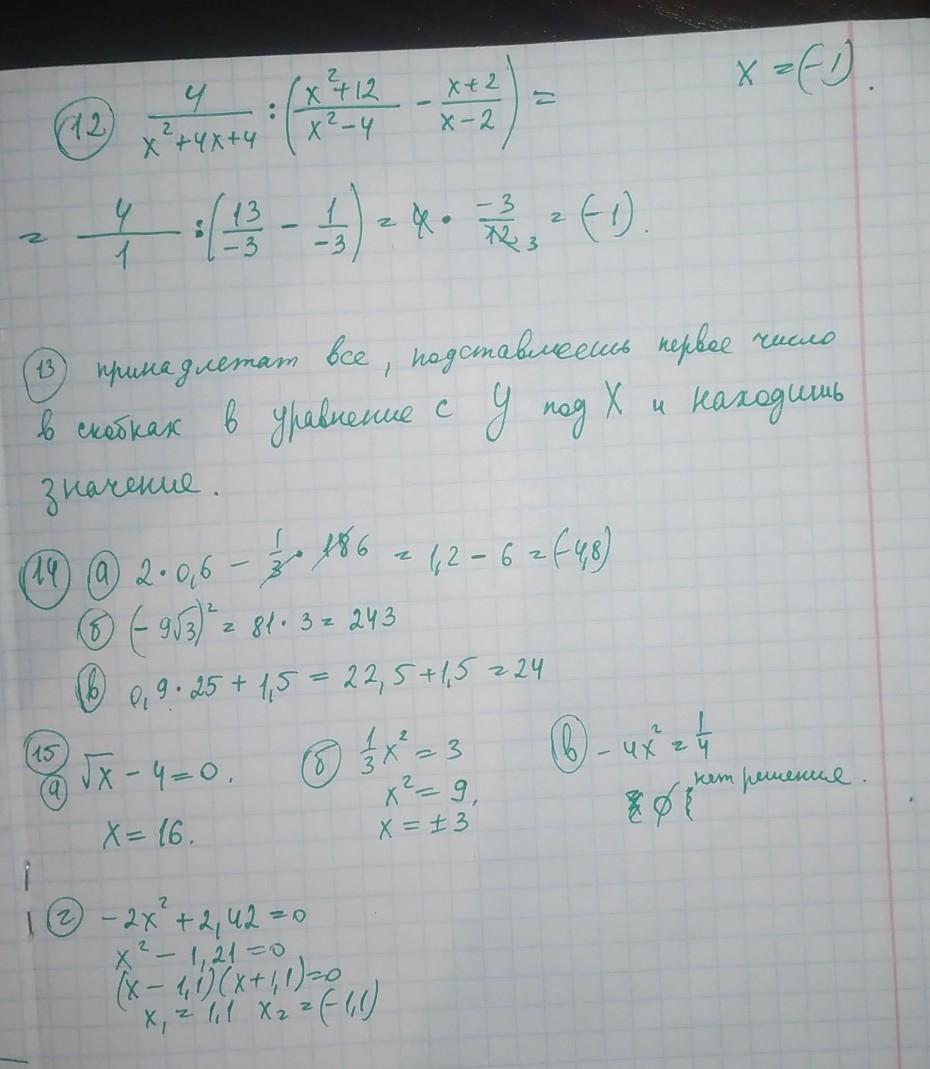 12 4/(x²+4x+4) : ((x²+12)/(x²-4) - (x+2)/(x-2)) = x = (-1).
= 4/1 : (13/-3 - 1/-3) = 4 · -3/12 3 = (-1).
13 принадлетат все, подставлеешь первое число
в скобках в уравнение с y под X и находишь
значение.
14 а 2·0,6 - 1/3 · 18 6 = 1,2 - 6 = (-4,8)
б (-9√3)² = 81·3 = 243
в 0,9·25 + 1,5 = 22,5 + 1,5 = 24
15 а √x - 4 = 0. б 1/3 x² = 3 в -4x² = 1/4
x = 16. x² = 9, ∅ нет решение.
x = ±3
г -2x² + 2,42 = 0
x² - 1,21 = 0
(x - 1,1)(x + 1,1) = 0
x₁ = 1,1 x₂ = (-1,1)